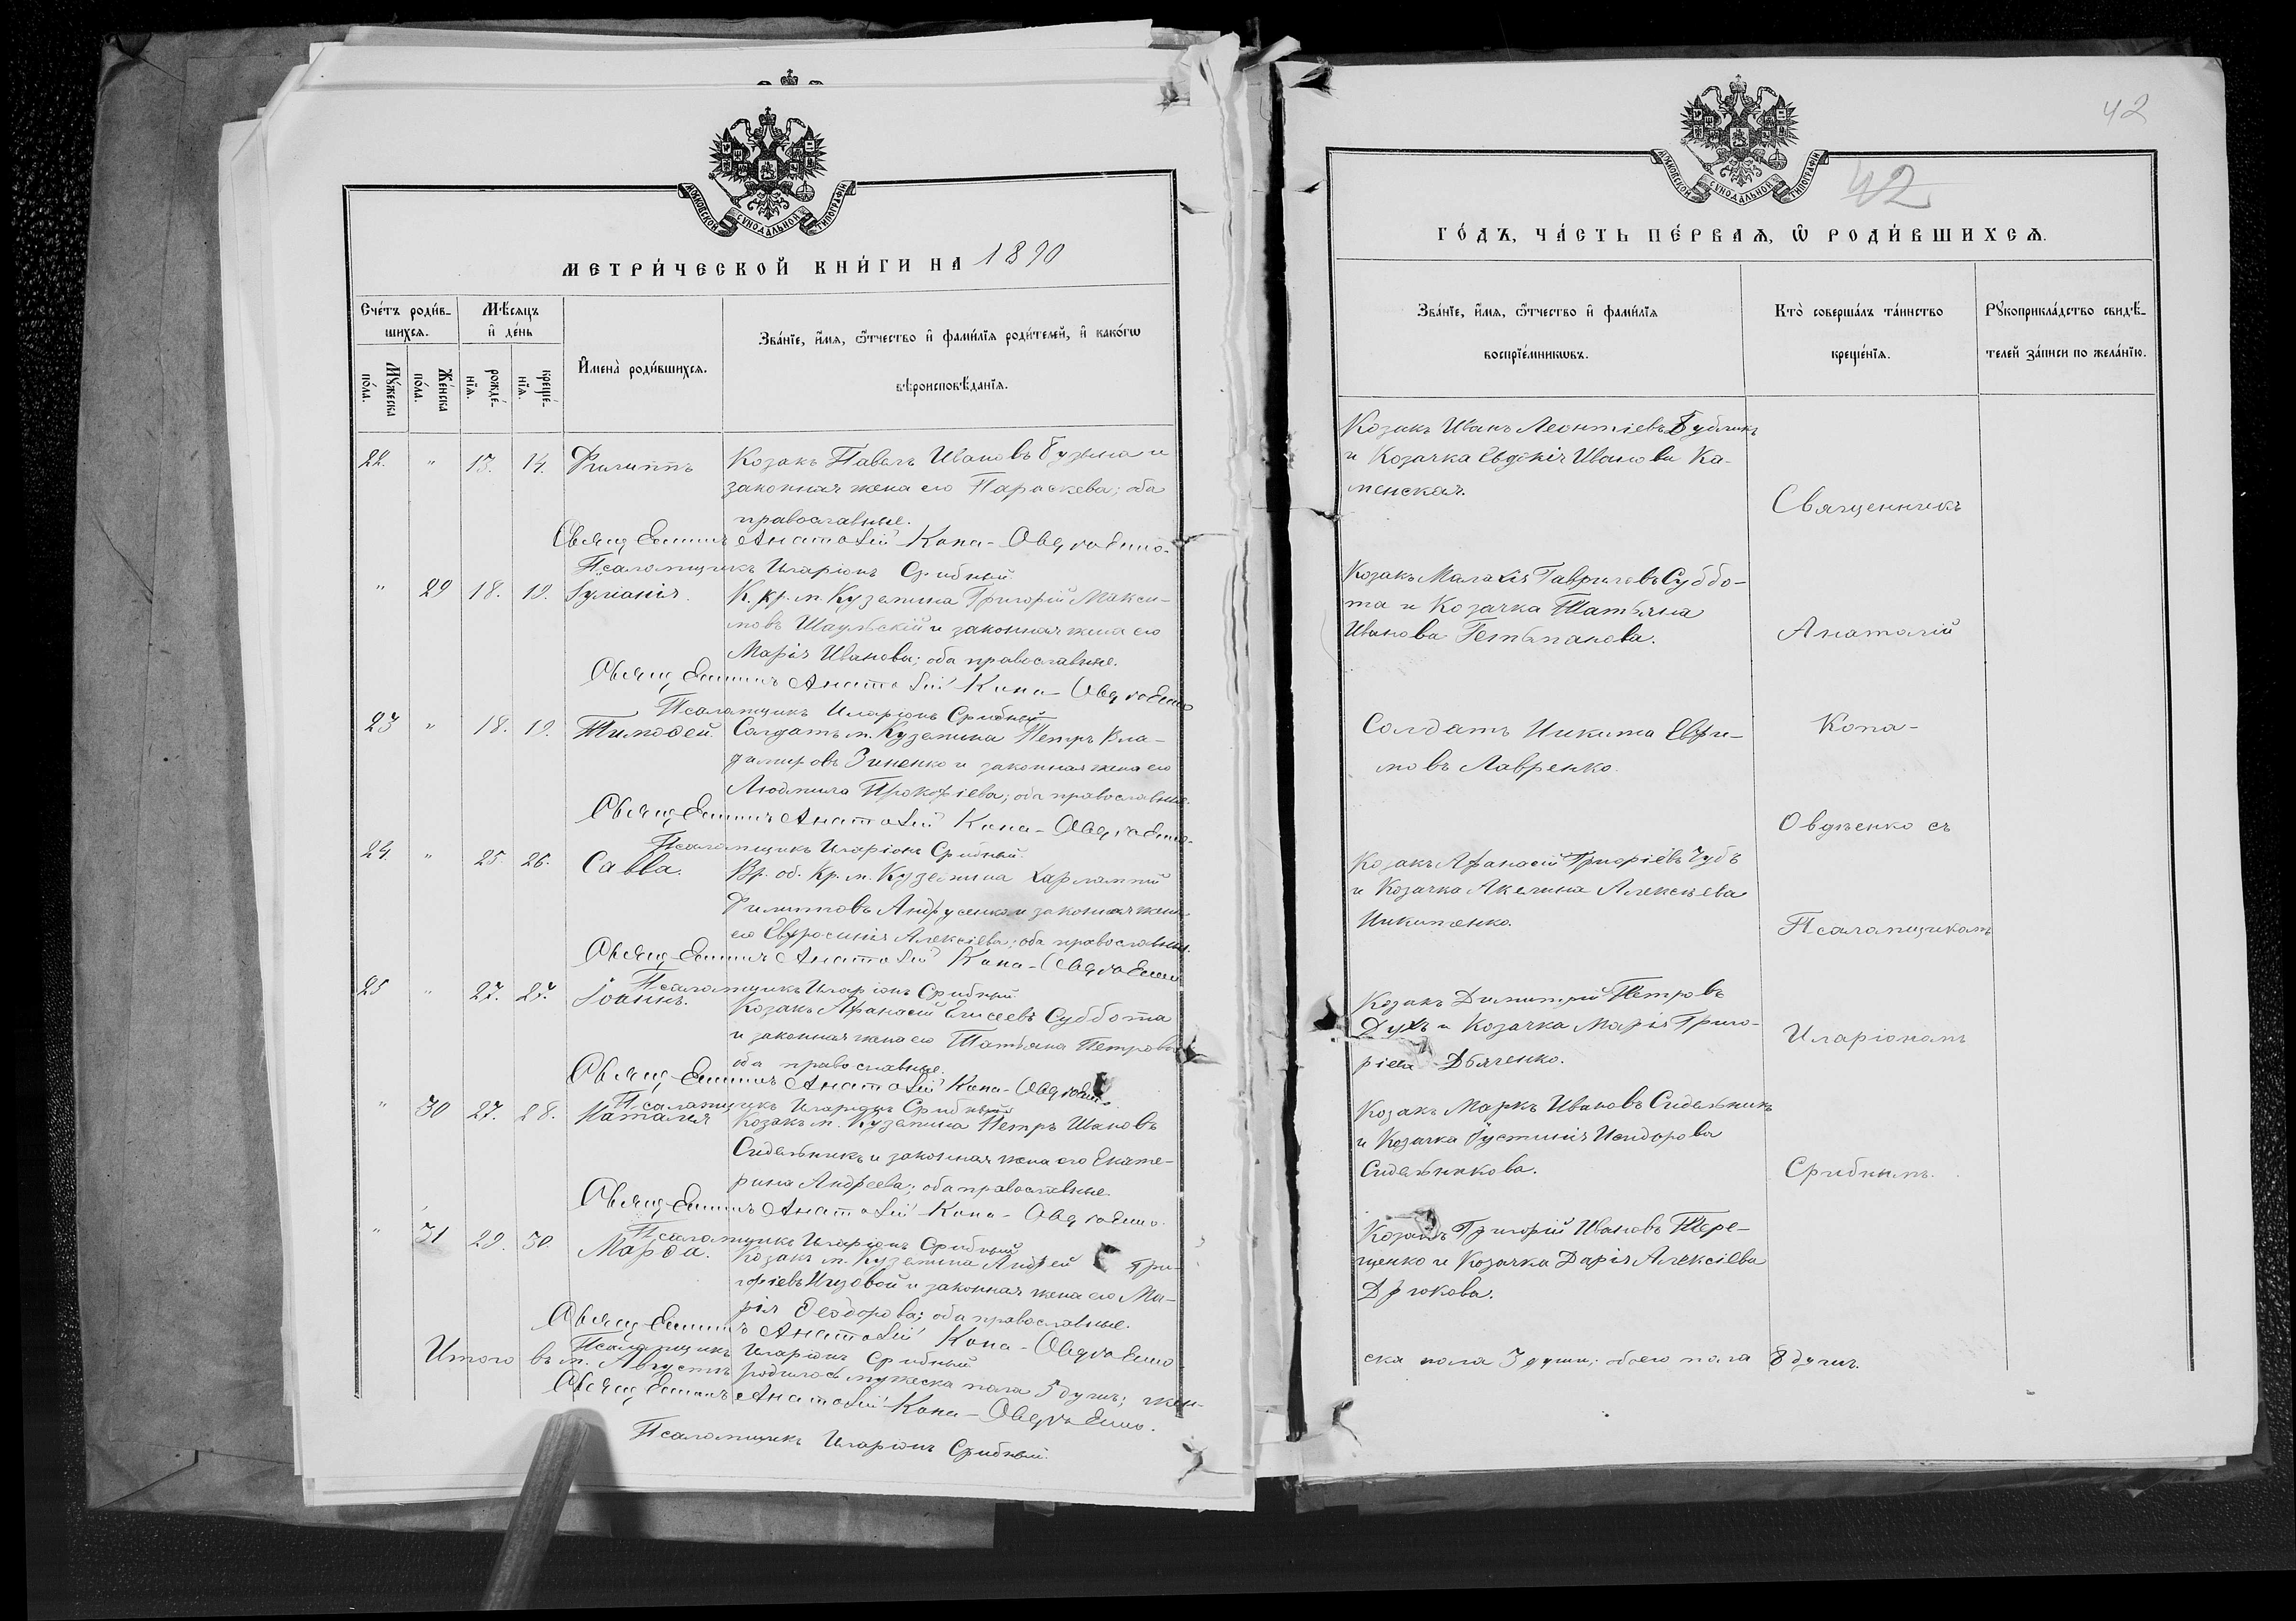 МОСКОВСКОЙ СѴНОДАЛЬНОЙ ТИПОГРАФІИ
МЕТРИ́ЧЕСКОЙ КНИ́ГИ НА 1890
Сче́тъ роди́в-
шихсѧ.
Мѣ́сѧцъ
и҆ де́нь
Мꙋ́жеска
по́ла.
Же́нска
по́ла.
рожде́-
нїѧ.
креще́-
нїѧ.
И҆мена̀ роди́вшихсѧ.
Зва́нїе, и҆́мѧ, ѻ҆́тчество и҆ фами́лїѧ роди́телей, и҆ како́гѡ
вѣроисповѣ́данїѧ.
22. " 13. 14. Филиппъ Козакъ Павелъ Ивановъ Бузына и
законная жена его Параскева; оба
православные.
Священникъ Анатолій Копа-Овдѣенко.
Псаломщикъ Иларіонъ Срибный.
" 29 18. 19. Іуліанія. К. кр. м. Куземина Григорій Макси-
мовъ Шаульскій и законная жена его
Марія Иванова; оба православные.
Священникъ Анатолій Копа-Овдѣенко
Псаломщикъ Иларіонъ Срибный
23 " 18. 19. Тимоѳей Солдатъ м. Куземина Петръ Вла-
димировъ Зиненко и законная жена его
Людмила Прокофіева; оба православные.
Священникъ Анатолій Копа-Овдѣенко.
Псаломщикъ Иларіонъ Срибный.
24. " 25. 26. Савва. Вр. об. кр. м. Куземина Харлампій
Филипповъ Андрусенко и законная жена
его Евфросинія Алексіева; оба православные.
Священникъ Анатолій Копа-Овдѣенко
Псаломщикъ Иларіонъ Срибный
25 " 27. 27. Іоаннъ. Козакъ Афанасій Елисеевъ Суббота
и законная жена его Татьяна Петрова
оба православные.
Священникъ Анатолій Копа-Овдѣенко.
Псаломщикъ Иларіонъ Срибный
" 30 27. 28. Наталія Козакъ м. Куземина Петръ Ивановъ
Сидельникъ и законная жена его Екате-
рина Андреева; оба православные.
Священникъ Анатолій Копа-Овдѣенко.
Псаломщикъ Иларіонъ Срибный
" 31 29. 30. Марѳа. Козакъ м. Куземина Андрей Гри-
горіевъ Низовой и законная жена его Ма-
рія Ѳеодорова; оба православные.
Священникъ Анатолій Копа-Овдѣенко
Псаломщикъ Иларіонъ Срибный
Итого въ м. Августѣ родилось мужеска пола 5 душъ; жен-
Священникъ Анатолій Копа-Овдѣенко.
Псаломщикъ Иларіонъ Срибный.
42
МОСКОВСКОЙ СѴНОДАЛЬНОЙ ТИПОГРАФІИ
42
ГО́ДЪ, ЧА́СТЬ ПЕ́РВАѦ, Ѡ҆ РОДИ́ВШИХСѦ.
Зва́нїе, и҆́мѧ, ѻ҆́тчество и҆ фами́лїѧ
воспрїе́мникѡвъ.
Кто̀ соверша́лъ та́инство
креще́нїѧ.
Рꙋкоприкла́дство свидѣ́-
телей за́писи по жела́нїю.
Козакъ Иванъ Леонтіевъ Бубликъ
и Козачка Евдокія Иванова Ка-
менская.
Священникъ
Козакъ Малахія Гавриловъ Суббо-
та и Козачка Татьяна
Иванова Гетьманова.
Анатолій
Солдатъ Никита Евфи-
мовъ Лавренко.
Копа-
Овдѣенко съ
Козакъ Афанасій Григоріевъ Чубъ
и Козачка Акелина Алексѣева
Никитенко.
Псаломщикомъ
Козакъ Димитрій Петровъ
Духъ и Козачка Марія Григо-
ріева Дьяченко.
Иларіономъ
Козакъ Маркъ Ивановъ Сидельникъ
и Козачка Іустинія Исидорова
Сидельникова.
Срибнымъ.
Козакъ Григорій Ивановъ Тере-
щенко и Козачка Дарія Алексіева
Дрюкова.
ска пола 3 души; обоего пола 8 душъ.